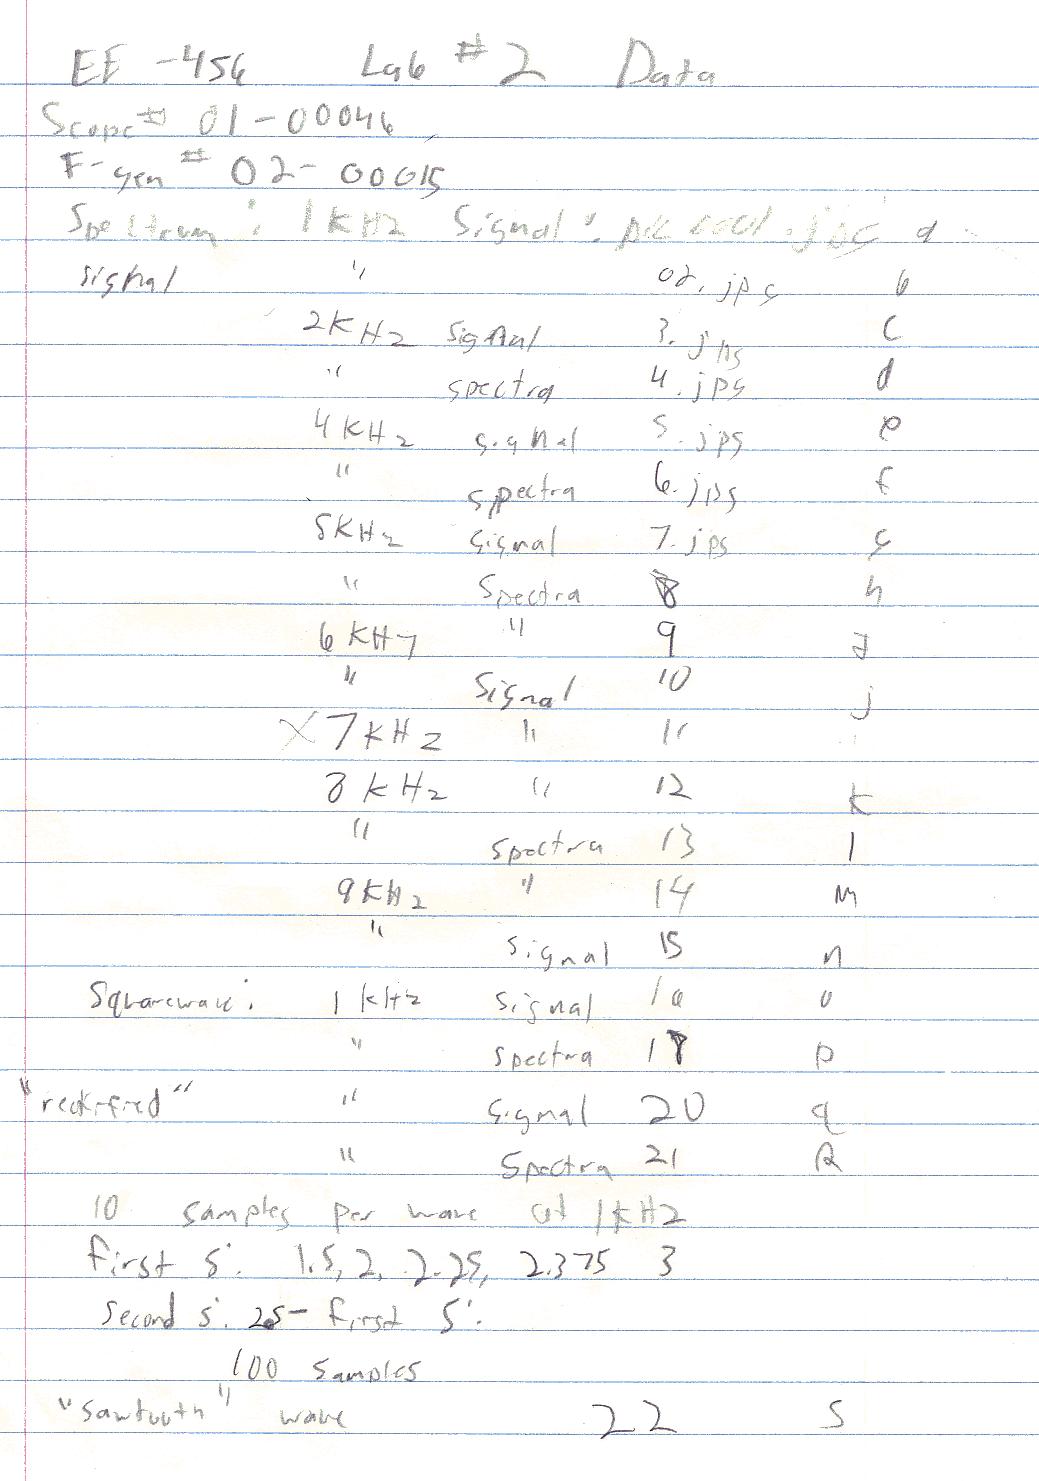 EE -456 Lab #2 Data
Scope # 01-00046
F-gen # 02-00015
Spectrum: 1 KHz Signal: 
signal " 02.jpg b
2KHz signal 3.jpg C
" spectra 4.jpg d
4KHz signal 5.jpg e
" spectra 6.jpg f
5KHz signal 7.jpg g
" Spectra 8 h
6 KHz " 9
" Signal 10 j
X 7 KHz " 11
8 KHz " 12 k
" spectra 13 l
9KHz " 14 m
" signal 15 n
Squarewave: 1 kHz signal o
" spectra p
"rectified" " signal 20 q
" Spectra 21 R
10 samples per wave at 1KHz
first 5: 1.5, 2, 2.25, 2.375 3
Second 5: - first 5:
100 samples
"Sawtooth" wave 22 S